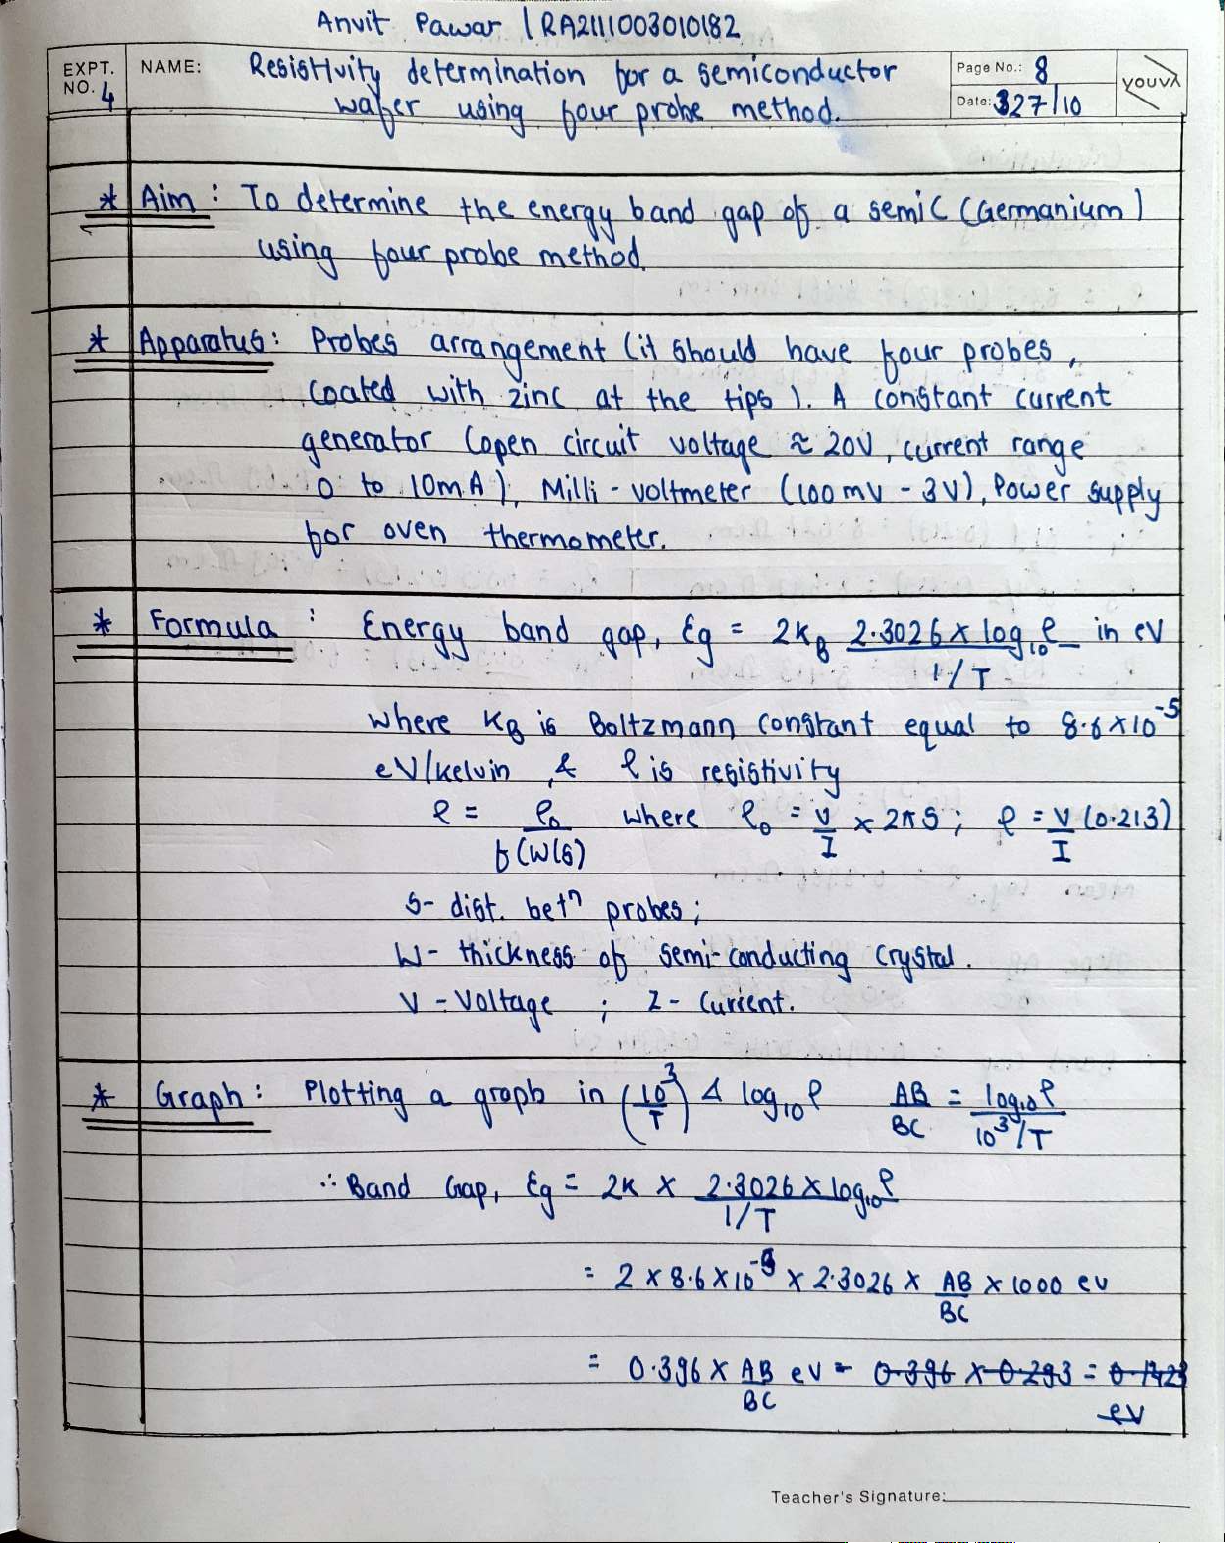 Anvit Pawar | RA2111003010182
EXPT. NO. 4 NAME: Resistivity determination for a semiconductor Page No.: 8 youva
wafer using four probe method. Date: 27/10
* Aim : To determine the energy band gap of a semi C (Germanium)
using four probe method.
* Apparatus : Probes arrangement (it should have four probes,
coated with zinc at the tips). A constant current
generator (open circuit voltage ≈ 20V, current range
0 to 10mA), Milli-voltmeter (100mV - 3V), Power supply
for oven thermometer.
* Formula : Energy band gap, Eg = 2K_B (2.3026 x log₁₀ρ)/(1/T) in eV
where K_B is Boltzmann constant equal to 8.6x10⁻⁵
eV/kelvin & ρ is resistivity
ρ = ρ₀/f(W/S) where ρ₀ = V/I x 2πS ; ρ = V/I (0.213)
S- dist. betⁿ probes;
W- thickness of semi-conducting crystal.
V - Voltage ; I - Current.
* Graph : Plotting a graph in (10³/T) & log₁₀ρ AB/BC = log₁₀ρ/(10³/T)
∴ Band Gap, Eg = 2K x (2.3026 x log₁₀ρ)/(1/T)
= 2 x 8.6 x 10⁻⁵ x 2.3026 x AB/BC x 1000 eV
= 0.396 x AB/BC eV = 0.396 x 0.293 =
eV
Teacher's Signature: